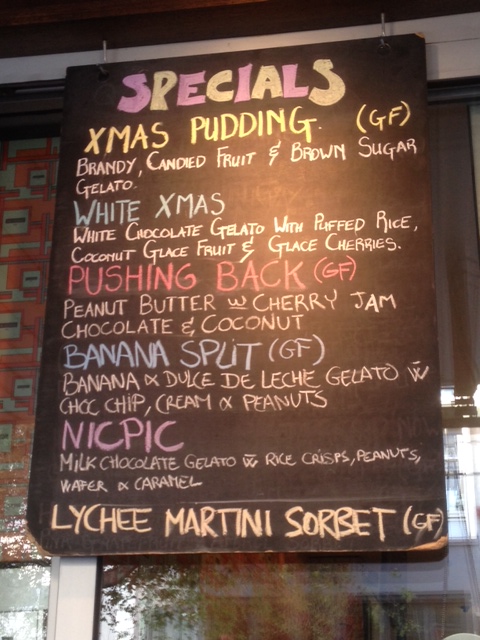 SPECIALS
XMAS PUDDING. (GF)
BRANDY, CANDIED FRUIT & BROWN SUGAR
GELATO.
WHITE XMAS
WHITE CHOCOLATE GELATO WITH PUFFED RICE,
COCONUT GLACE FRUIT & GLACE CHERRIES.
PUSHING BACK (GF)
PEANUT BUTTER w CHERRY JAM
CHOCOLATE & COCONUT
BANANA SPLIT (GF)
BANANA & DULCE DE LECHE GELATO w
CHOC CHIP, CREAM & PEANUTS
NICPIC
MILK CHOCOLATE GELATO w RICE CRISPS, PEANUTS,
WAFER & CARAMEL
LYCHEE MARTINI SORBET (GF)